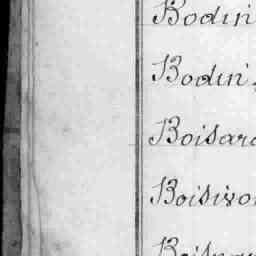 Bodin
Bodin
Boisar
Boisivo